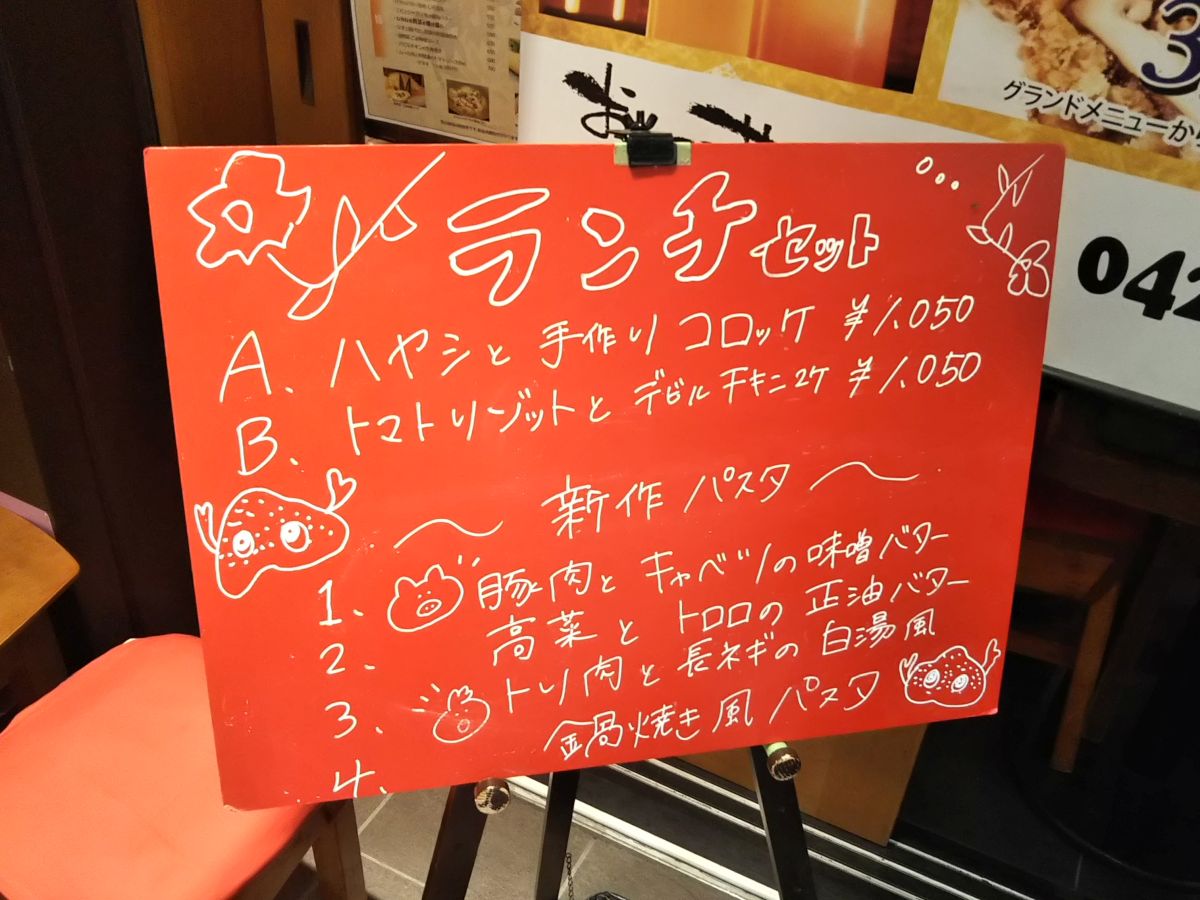 グランドメニューから
042
ランチセット
A. ハヤシと手作りコロッケ ¥1.050
B. トマトリゾットとデビルチキン2ケ ¥1.050
〜 新作パスタ 〜
1. 豚肉とキャベツの味噌バター
2. 高菜とトロロの正油バター
3. トリ肉と長ネギの白湯風
4. 鍋焼き風パスタ